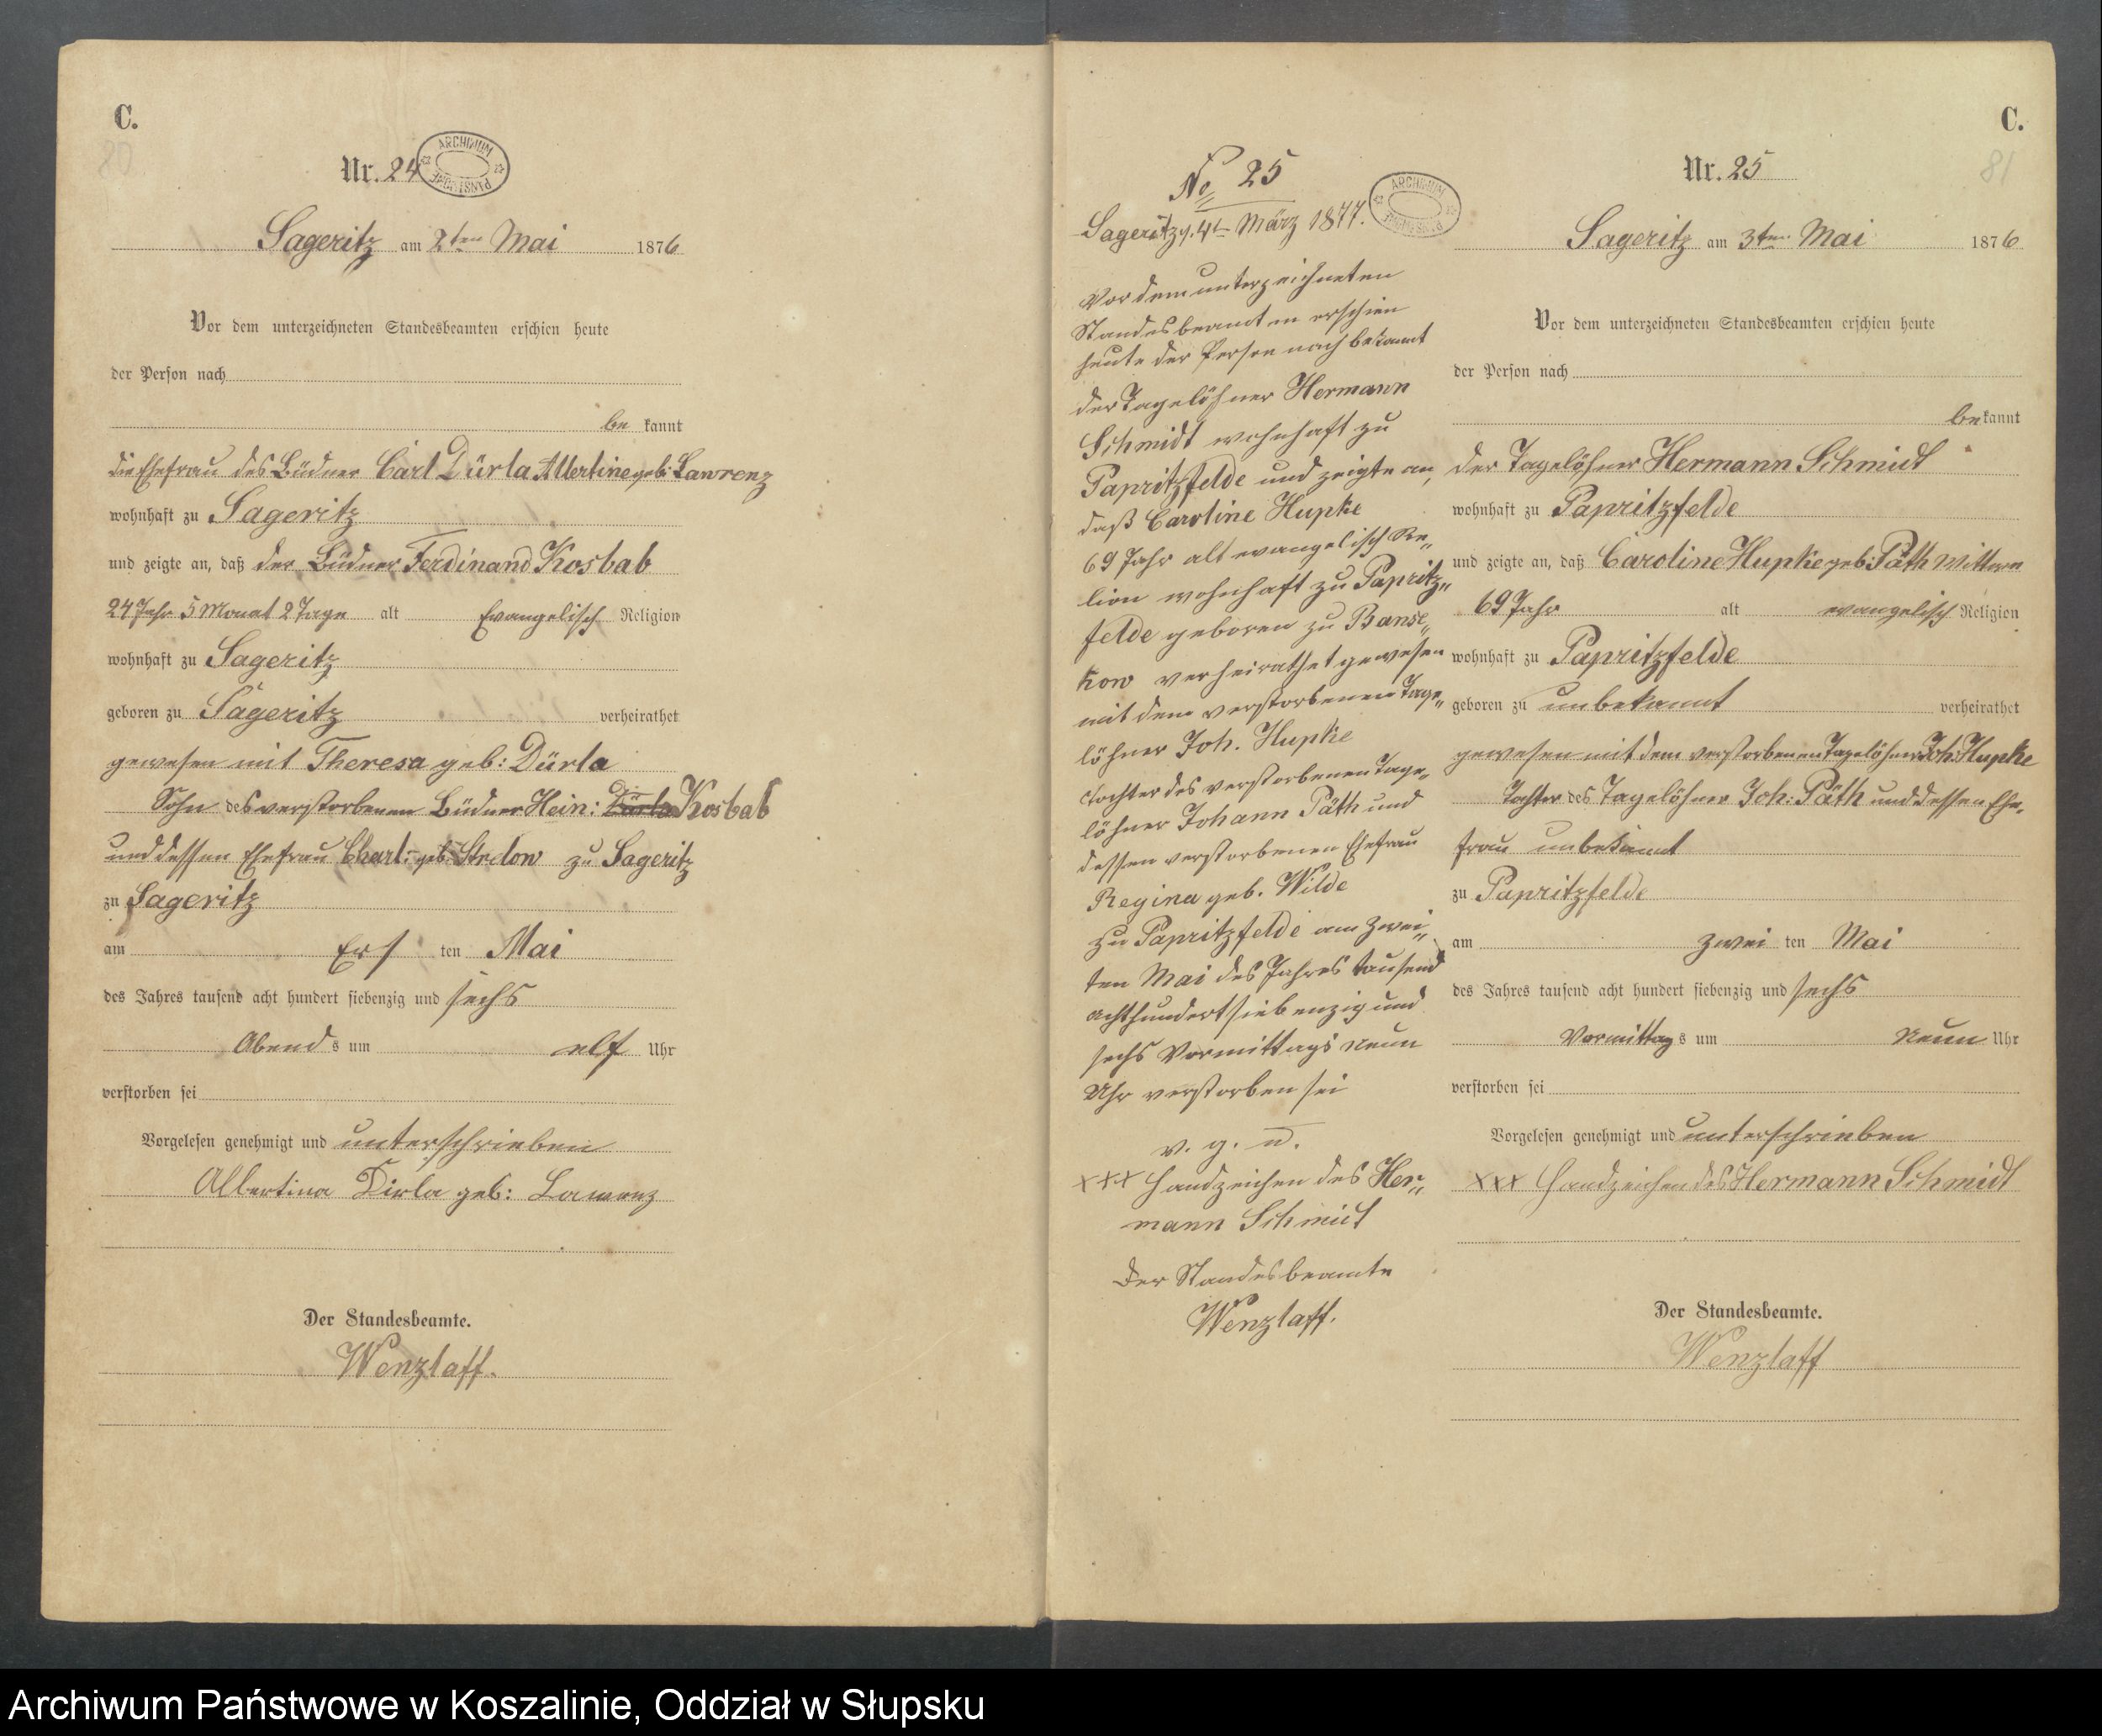 C.
80
Nr. 24
ARCHIWUM PAŃSTWOWE
Sageritz am 2ten Mai 1876
Vor dem unterzeichneten Standesbeamten erschien heute
der Person nach
be kannt
die Ehefrau des Büdner Carl Dürla Albertine geb: Lawrenz
wohnhaft zu Sageritz
und zeigte an, daß der Büdner Ferdinand Kosbab
24 Jahr 5 Monat 2 Tage alt Evangelisch Religion
wohnhaft zu Sageritz
geboren zu Sageritz verheirathet
gewesen mit Theresa geb: Dürla
Sohn des verstorbenen Büdner Hein: Dürla Kosbab
und dessen Ehefrau Charl: geb: Strelow zu Sageritz
zu Sageritz
am Ers ten Mai
des Jahres tausend acht hundert siebenzig und sechs
Abend s um elf Uhr
verstorben sei
Vorgelesen genehmigt und unterschrieben
Albertina Dirla geb: Lawrenz
Der Standesbeamte.
Wenzlaff.
No 25
Sageritz, d. 4t März 1877.
ARCHIWUM PAŃSTWOWE
Vor dem unterzeichneten
Standesbeamten erschien
heute der Person nach bekannt
der Tagelöhner Hermann
Schmidt wohnhaft zu
Papritzfelde und zeigte an,
daß Caroline Hupke
69 Jahr alt evangelisch Re„
lion wohnhaft zu Papritz„
felde geboren zu Banse„
kow verheirathet gewesen
mit dem verstorbenen Tage„
löhner Joh. Hupke
Tochter des verstorbenen Tage„
löhner Johann Päth und
dessen verstorbenen Ehefrau
Regina geb. Wilde
zu Papritzfelde am zwei„
ten Mai des Jahres tausend
achthundert siebenzig und
sechs Vormittags neun
Uhr verstorben sei
v. g. u.
xxx Handzeichen des Her„
mann Schmidt
Der Standesbeamte
Wenzlaff.
C.
81
Nr. 25
Sageritz am 3ten Mai 1876
Vor dem unterzeichneten Standesbeamten erschien heute
der Person nach
be kannt
der Tagelöhner Hermann Schmidt
wohnhaft zu Papritzfelde
und zeigte an, daß Caroline Hupke geb: Päth Wittwe
69 Jahr alt evangelisch Religion
wohnhaft zu Papritzfelde
geboren zu unbekannt verheirathet
gewesen mit dem verstorbenen Tagelöhner Joh: Hupke
Tochter des Tagelöhner Joh: Päth und dessen Ehe„
frau unbekannt
zu Papritzfelde
am zwei ten Mai
des Jahres tausend acht hundert siebenzig und sechs
Vormittag s um Neun Uhr
verstorben sei
Vorgelesen genehmigt und unterschrieben
xxx Handzeichen des Hermann Schmidt
Der Standesbeamte.
Wenzlaff
Archiwum Państwowe w Koszalinie, Oddział w Słupsku